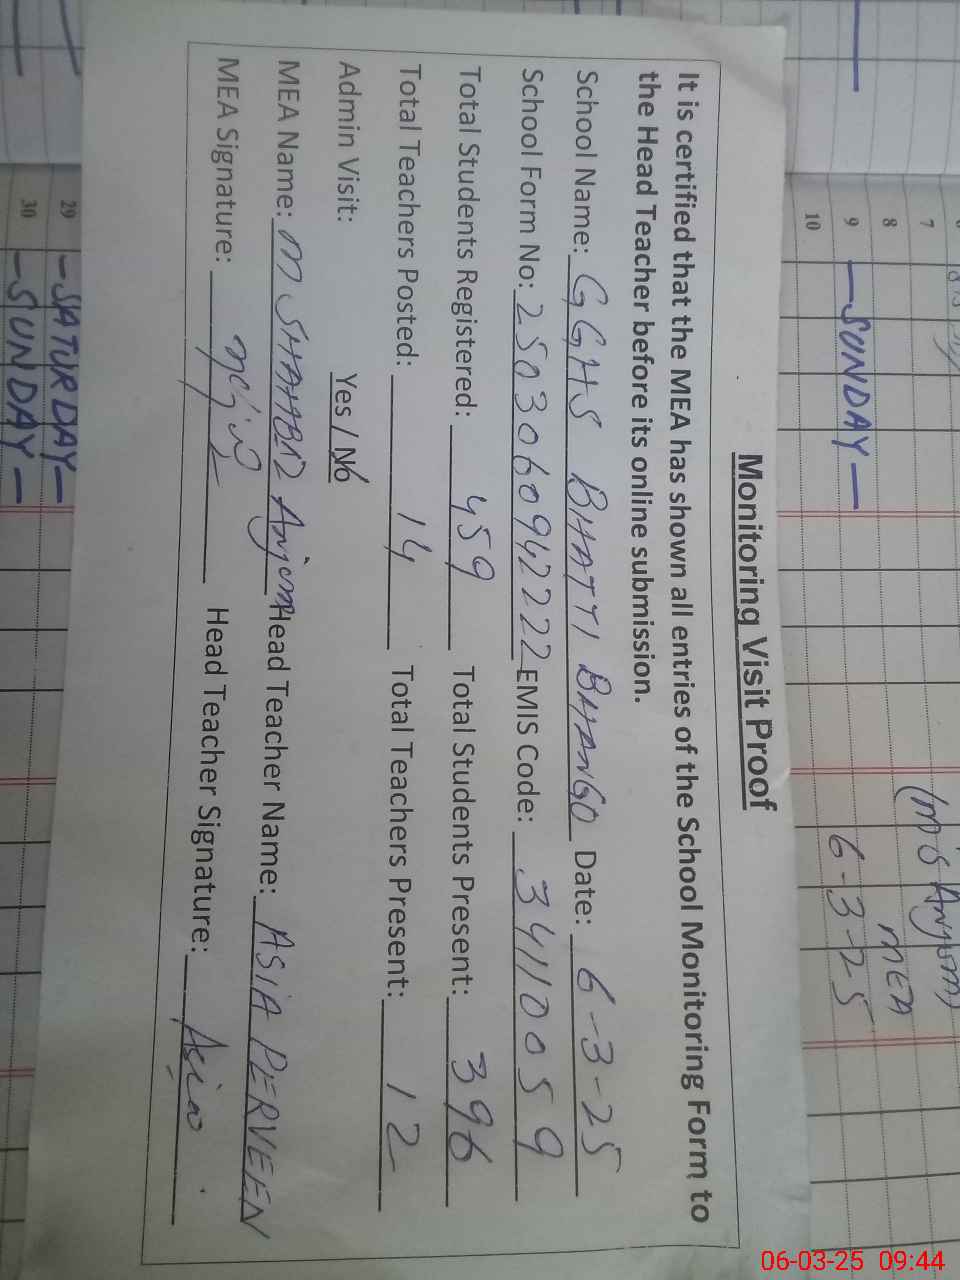 Monitoring Visit Proof
It is certified that the MEA has shown all entries of the School Monitoring Form to
the Head Teacher before its online submission.
School Name: GGHS BHATTI BHANGO Date: 6-3-25
School Form No: 2503060942222 EMIS Code: 34110059
Total Students Registered: 459 Total Students Present: 396
Total Teachers Posted: 14 Total Teachers Present: 12
Admin Visit: Yes / No
MEA Name: M SHAHBAZ Anjum Head Teacher Name: ASIA PERVEEN
MEA Signature: Head Teacher Signature: Asia
7
8
9 - SUNDAY -
10
(MS Anjum)
MEA
6-3-25
29 - SATURDAY -
30 - SUNDAY -
06-03-25 09:44